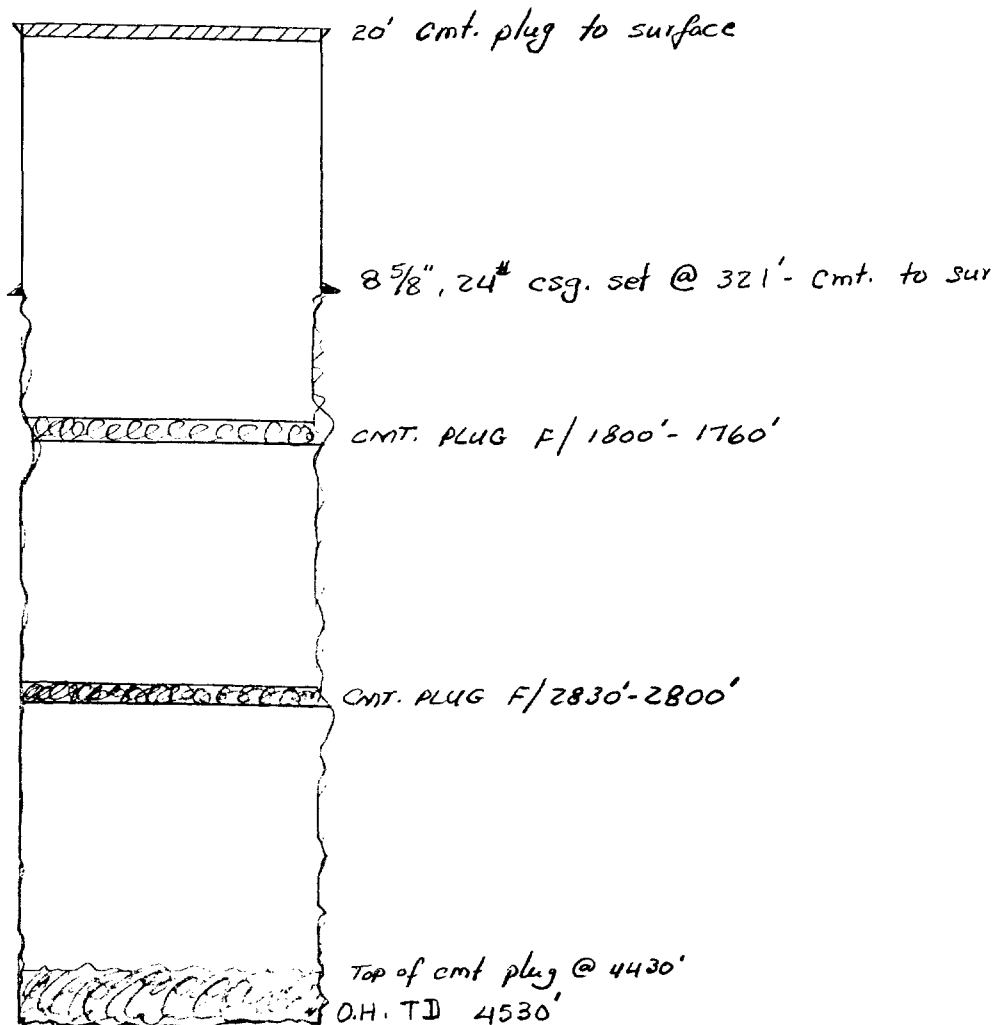 20' Cmt. plug to surface
8 5/8", 24# csg. set @ 321'- Cmt. to sur
CMT. PLUG F/ 1800'- 1760'
CMT. PLUG F/ 2830'-2800'
Top of cmt plug @ 4430'
O.H. TD 4530'